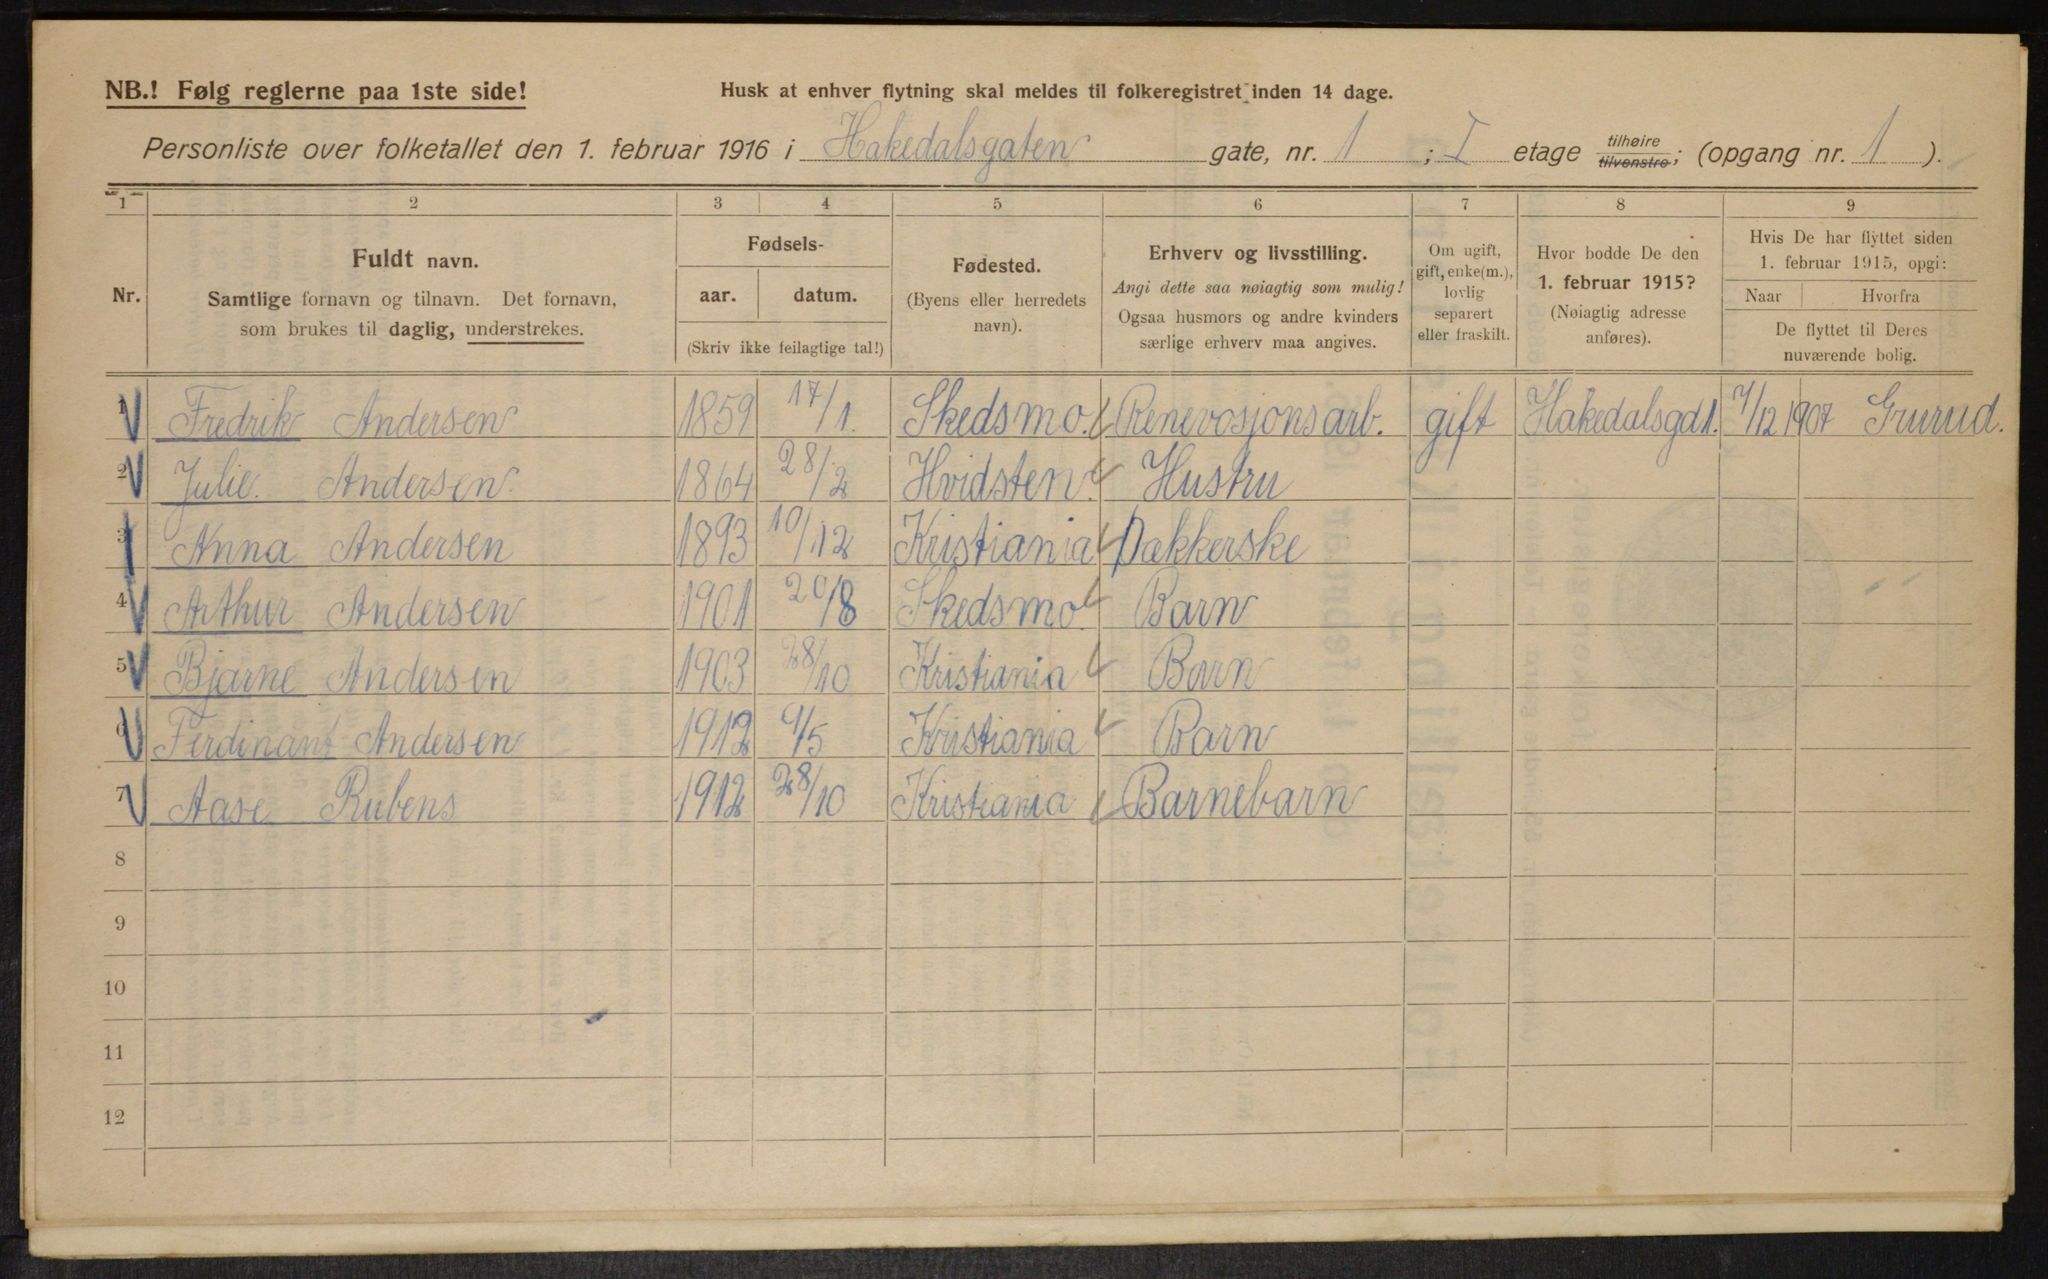 NB.! Følg reglerne paa 1ste side!
Husk at enhver flytning skal meldes til folkeregistret inden 14 dage.
Personliste over folketallet den 1. februar 1916 i Hakedalsgaten gate, nr. 1 ; I etage tilhøire tilvenstre; (opgang nr. 1 ).
1 2 3 4 5 6 7 8 9
Nr.
Fuldt navn.
Samtlige fornavn og tilnavn. Det fornavn,
som brukes til daglig, understrekes.
Fødsels-
aar. datum.
(Skriv ikke feilagtige tal!)
Fødested.
(Byens eller herredets
navn).
Erhverv og livsstilling.
Angi dette saa nøiagtig som mulig!
Ogsaa husmors og andre kvinders
særlige erhverv maa angives.
Om ugift,
gift, enke(m.),
lovlig
separert
eller fraskilt.
Hvor bodde De den
1. februar 1915?
(Nøiagtig adresse
anføres).
Hvis De har flyttet siden
1. februar 1915, opgi:
Naar Hvorfra
De flyttet til Deres
nuværende bolig.
1 Fredrik Andersen 1859 17/1. Skedsmo. Renevosjonsarb. gift Hakedalsgd 1. 1/12 1907 Grurud.
2 Julie. Andersen. 1864 28/2 Hvidsten. Hustru
3 Anna Andersen 1893 10/12 Kristiania Pakkerske
4 Arthur Andersen 1901 20/8 Skedsmo. Barn
5 Bjarne Andersen 1903 28/10 Kristiania Barn
6 Ferdinant Andersen 1912 9/5 Kristiania Barn
7 Aase Rubens 1912 28/10 Kristiania Barnebarn
8
9
10
11
12